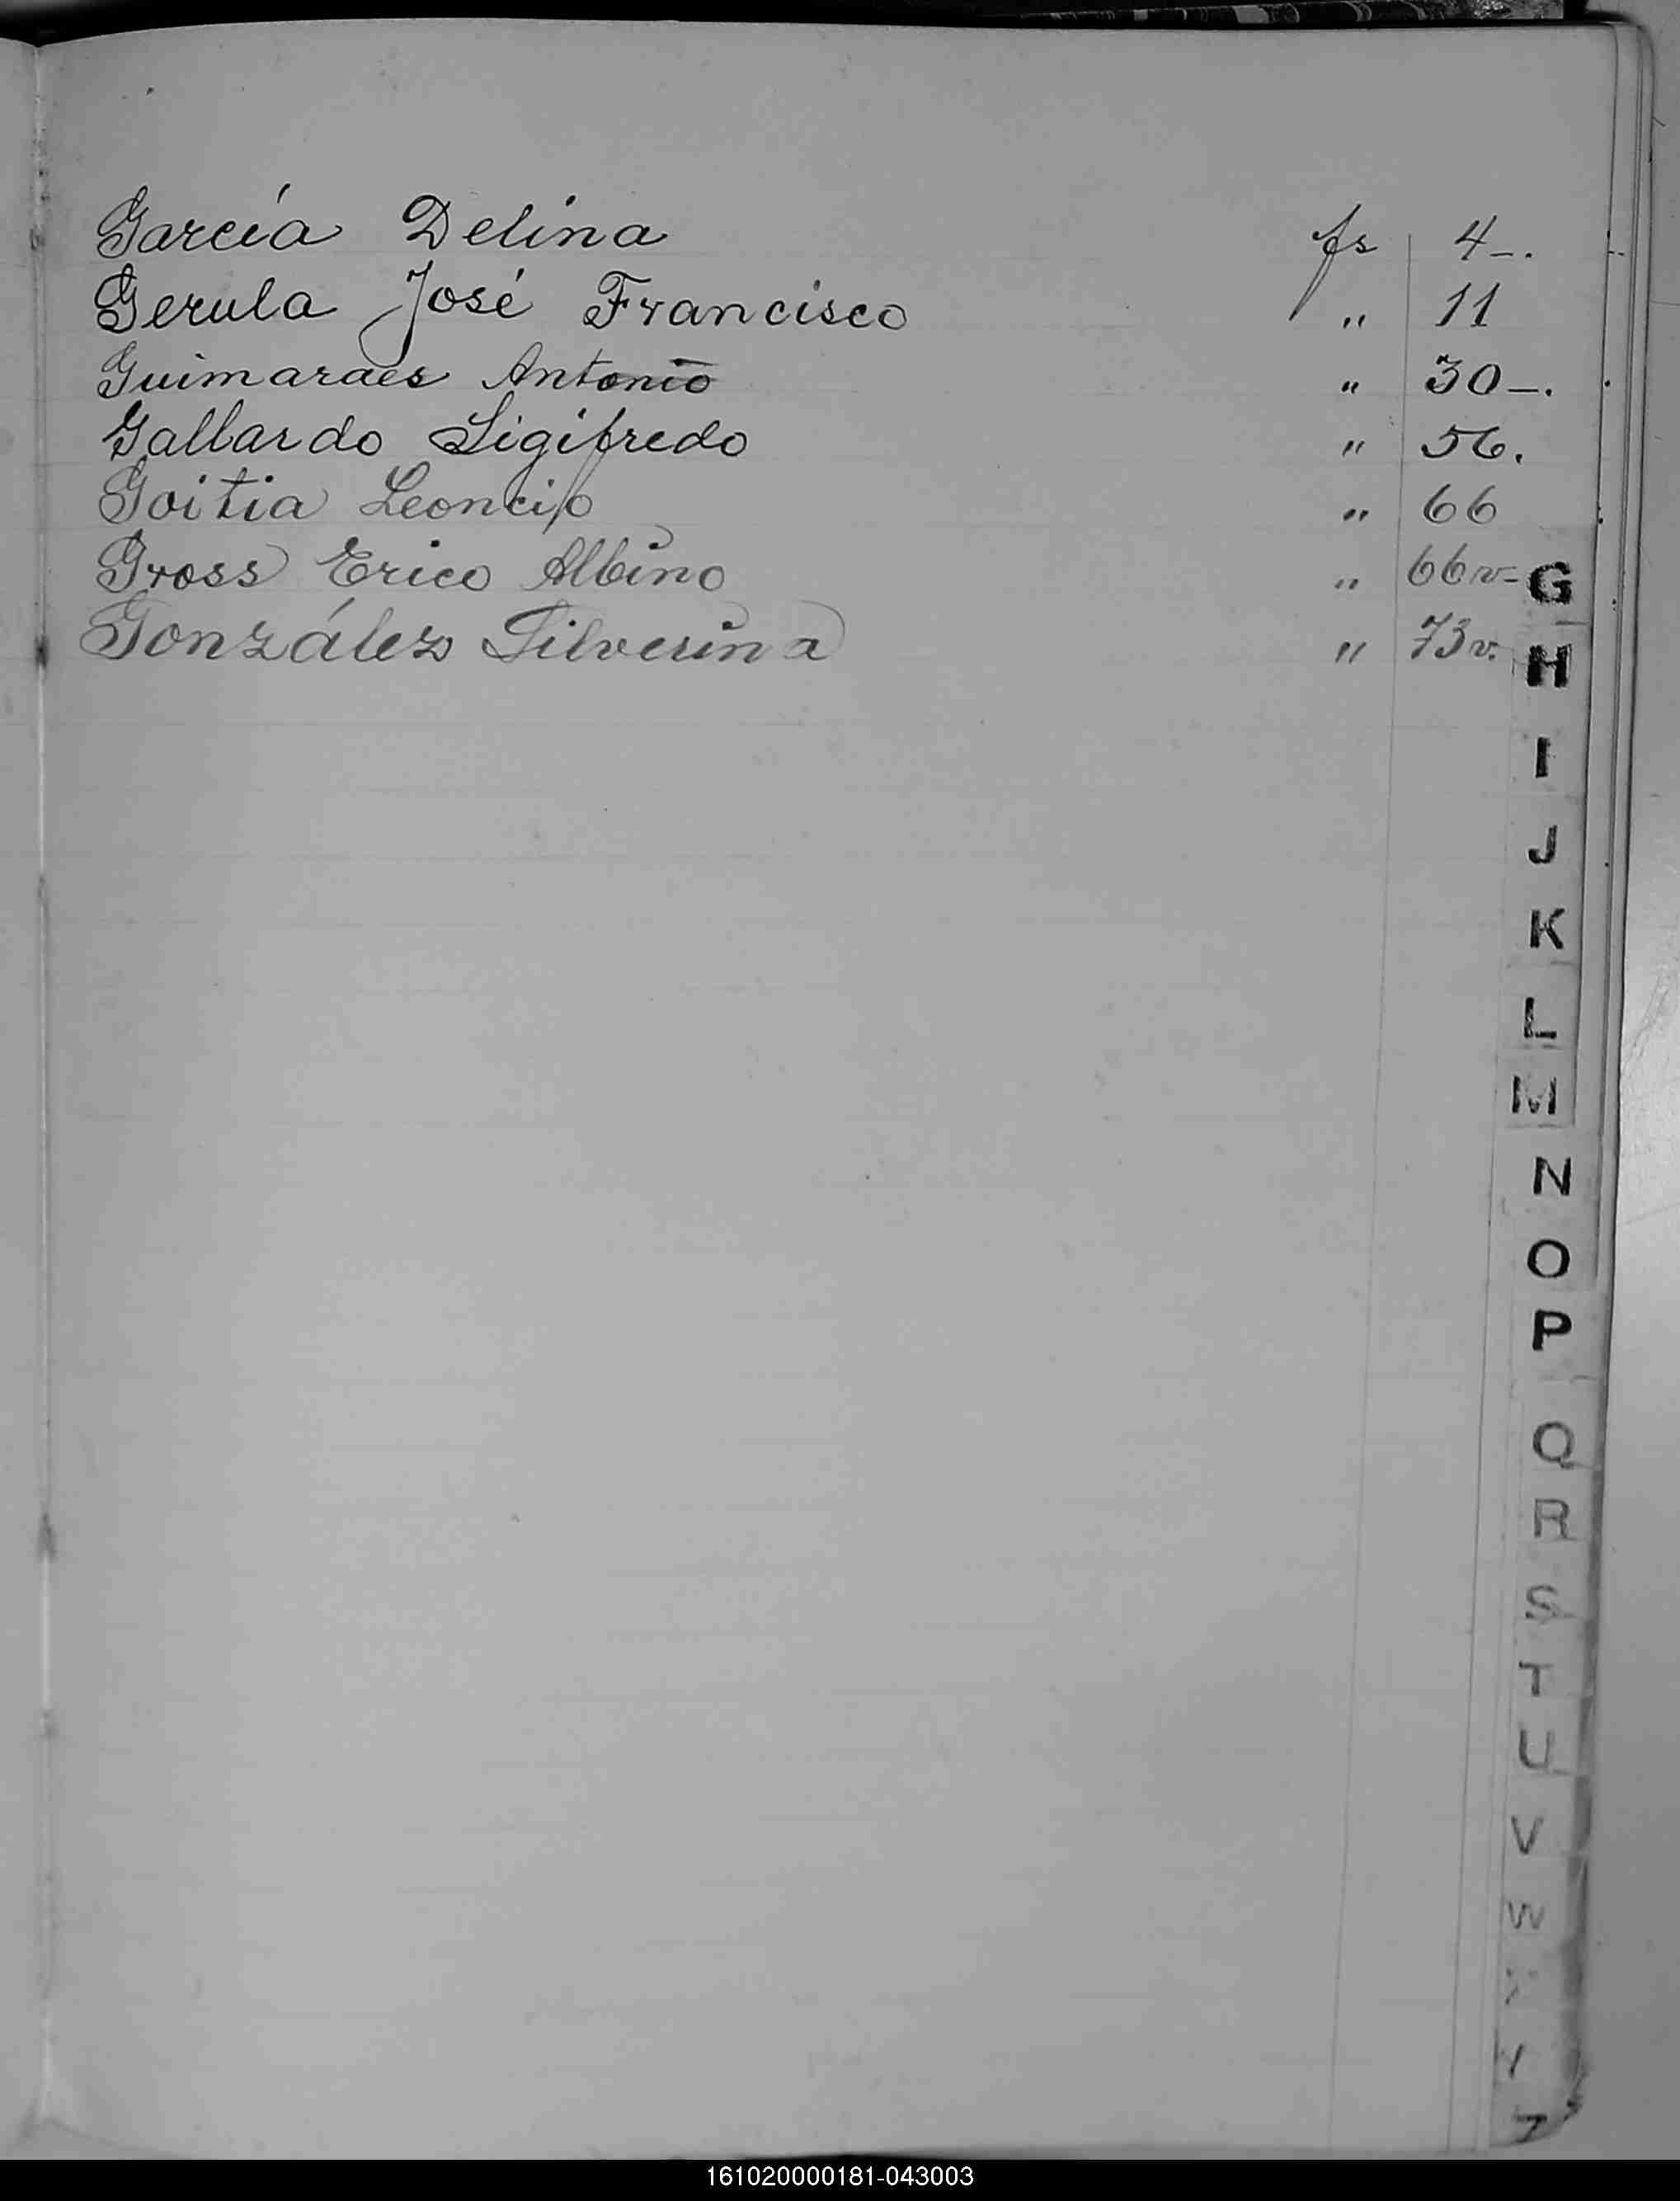 García Delina fs 4-.
Gerula José Francisco " 11
Guimaraes Antonio " 30-.
Gallardo Sigifredo " 56.
Goitia Leoncio " 66
Gross Erico Albino " 66v-
González Silverina " 73v.
G
H
I
J
K
L
M
N
O
P
Q
R
S
T
U
V
W
X
Y
Z
161020000181-043003